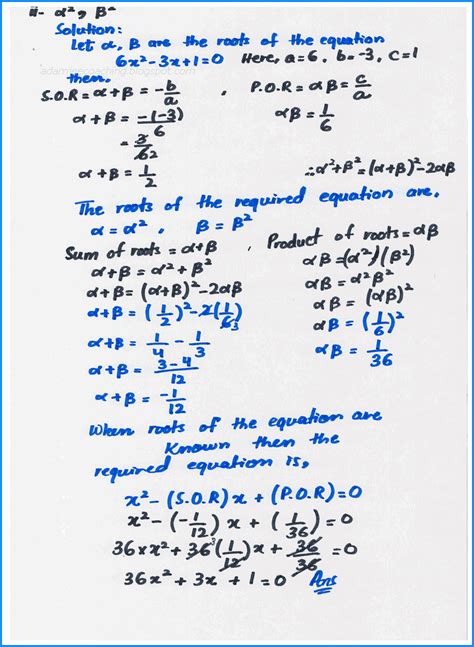 ii- α², β²
Solution:
Let α, β are the roots of the equation
6x²-3x+1=0 Here, a=6, b=-3, c=1
adamjeecoaching.blogspot.com
then.
S.O.R = α+β = -b/a , P.O.R = αβ = c/a
α+β = -(-3)/6 αβ = 1/6
= 3/62
α+β = 1/2 ∴α²+β²=(α+β)²-2αβ
The roots of the required equation are.
α=α², β=β²
Sum of roots = α+β , Product of roots=αβ
α+β = α²+β² αβ=(α²)(β²)
α+β = (α+β)²-2αβ αβ = α²β²
α+β = (1/2)²-2(1/63) αβ = (αβ)²
α+β = 1/4 - 1/3 αβ = (1/6)²
α+β = 3-4/12 αβ = 1/36
α+β = -1/12
When roots of the equation are
Known then the
required equation is,
x²-(S.O.R)x+(P.O.R)=0
x²-(-1/12)x+(1/36)=0
36xx²+36³(1/12)x+36/36=0
36x²+3x+1=0 Ans